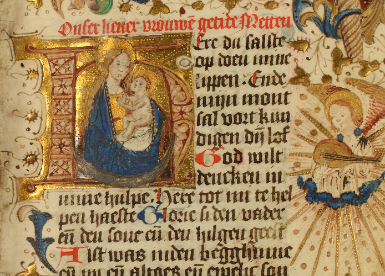 Onser liever vrouwen getide Metten
Ere du salste
op doen mine
lippen. Ende
mijn mont
sal vort kun
digen dij̄ lof
God wilt
dencken in
mine hulpe. Here tot mi te hel
pen haeste Glorie si den vader
en̄ den sone en̄ den hilgen geest
Alst was inden begghinne
en̄ nu en̄ altoes en̄ ewelic son